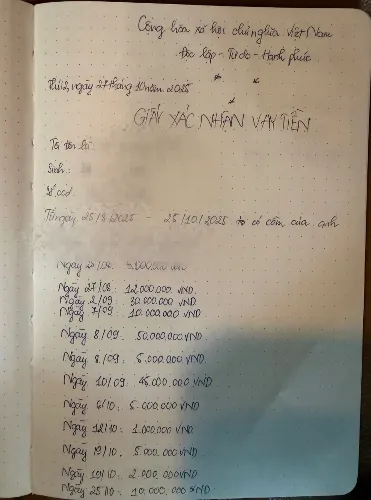 Cộng hòa xã hội chủ nghĩa Việt Nam
Độc lập - Tự do - Hạnh phúc
Thứ 2, ngày 27 tháng 10 năm 2025
GIẤY XÁC NHẬN VAY TIỀN
Tôi tên là
Sinh:
Số cccd
Từ ngày 25/8/2025 - 25/10/2025 tôi có cầm của anh
Ngày
Ngày 27/08: 12.000.000 VND
Ngày 2/09: 30.000.000 VND
Ngày 7/09: 10.000.000 VND
Ngày 8/09: 50.000.000 VND
Ngày 8/09: 5.000.000 VND
Ngày 10/09: 45.000.000 VND
Ngày 6/10: 5.000.000 VND
Ngày 12/10: 1.000.000 VND
Ngày 5.000.000 VND
Ngày 2.000.000 VND
Ngày 25/10: 10.000.000 VND